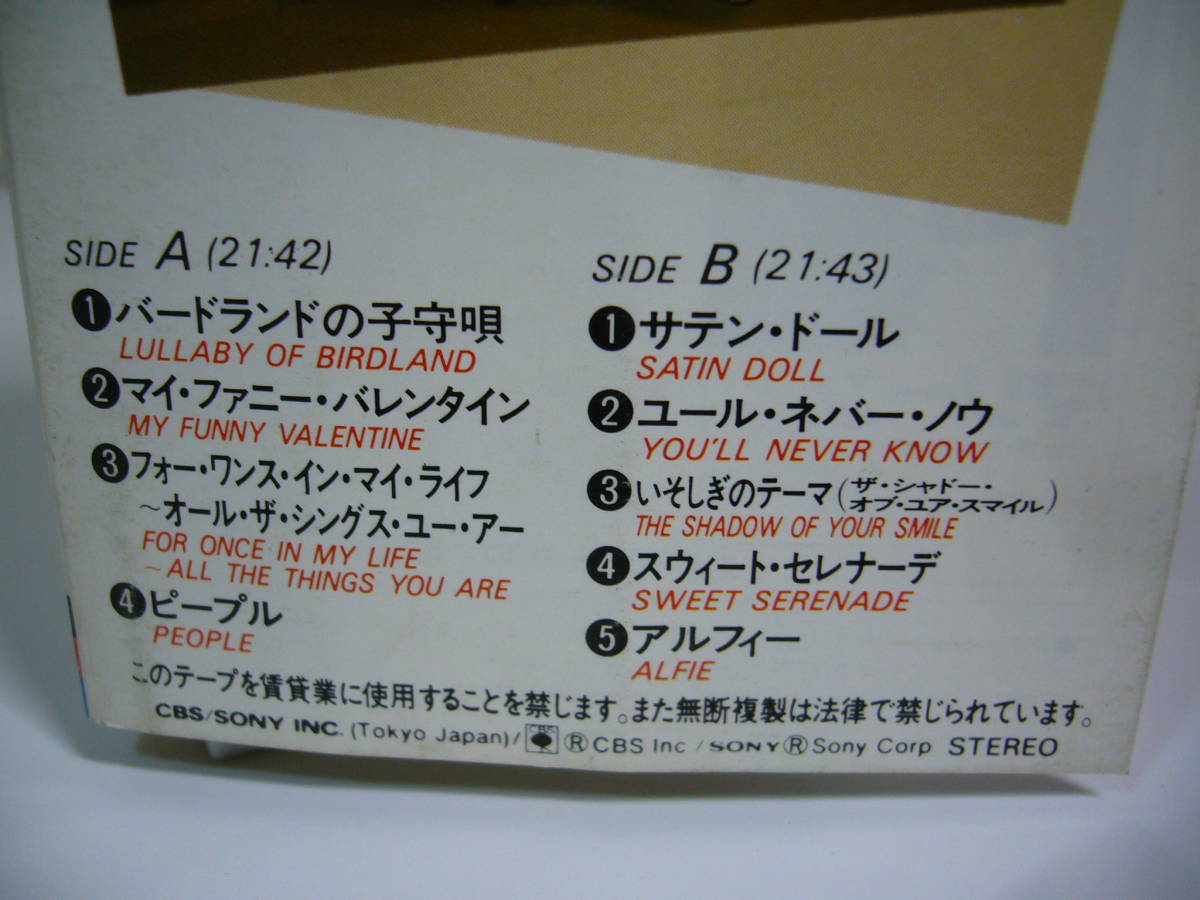 SIDE A (21:42)
❶バードランドの子守唄
LULLABY OF BIRDLAND
❷マイ・ファニー・バレンタイン
MY FUNNY VALENTINE
❸フォー・ワンス・イン・マイ・ライフ
～オール・ザ・シングス・ユー・アー
FOR ONCE IN MY LIFE
～ALL THE THINGS YOU ARE
❹ピープル
PEOPLE
SIDE B (21:43)
❶サテン・ドール
SATIN DOLL
❷ユール・ネバー・ノウ
YOU'LL NEVER KNOW
❸いそしぎのテーマ(ザ・シャドー・
オブ・ユア・スマイル)
THE SHADOW OF YOUR SMILE
❹スウィート・セレナーデ
SWEET SERENADE
❺アルフィー
ALFIE
このテープを賃貸業に使用することを禁じます。また無断複製は法律で禁じられています。
CBS/SONY INC. (Tokyo Japan)/CBS ®CBS Inc /SONY®Sony Corp STEREO